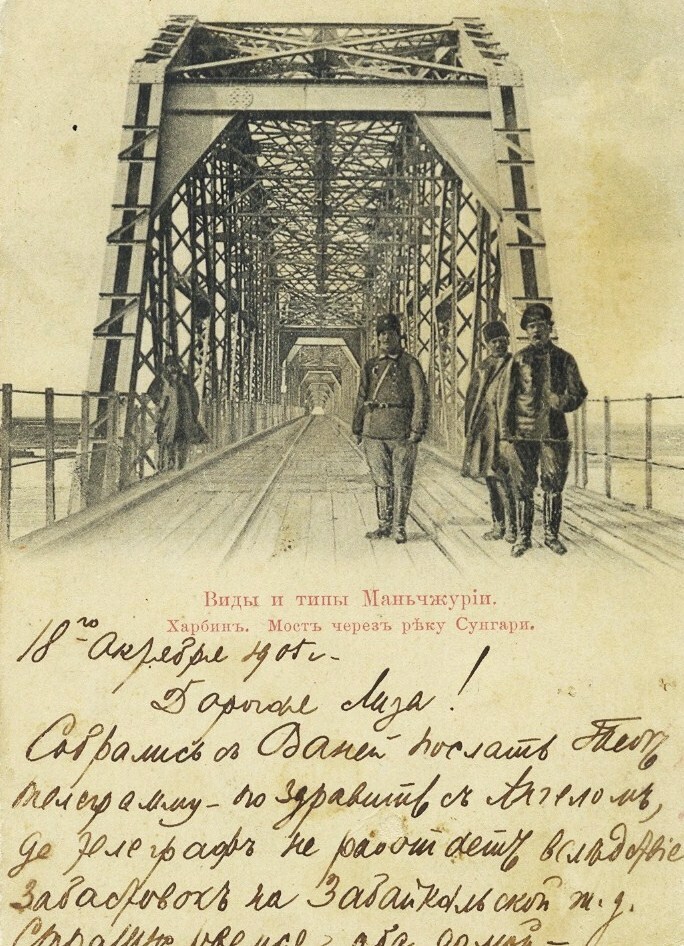 Виды и типы Маньчжуріи.
Харбинъ. Мостъ черезъ рѣку Сунгари.
18го Октября 1905 г.
Дорогая Лиза!
Собрались съ Ваней послать Тебѣ
телеграмму – поздравить съ Ангеломъ,
да телеграфъ не работаетъ вслѣдствіе
забастовокъ на Забайкальской ж. д.
оба домой –